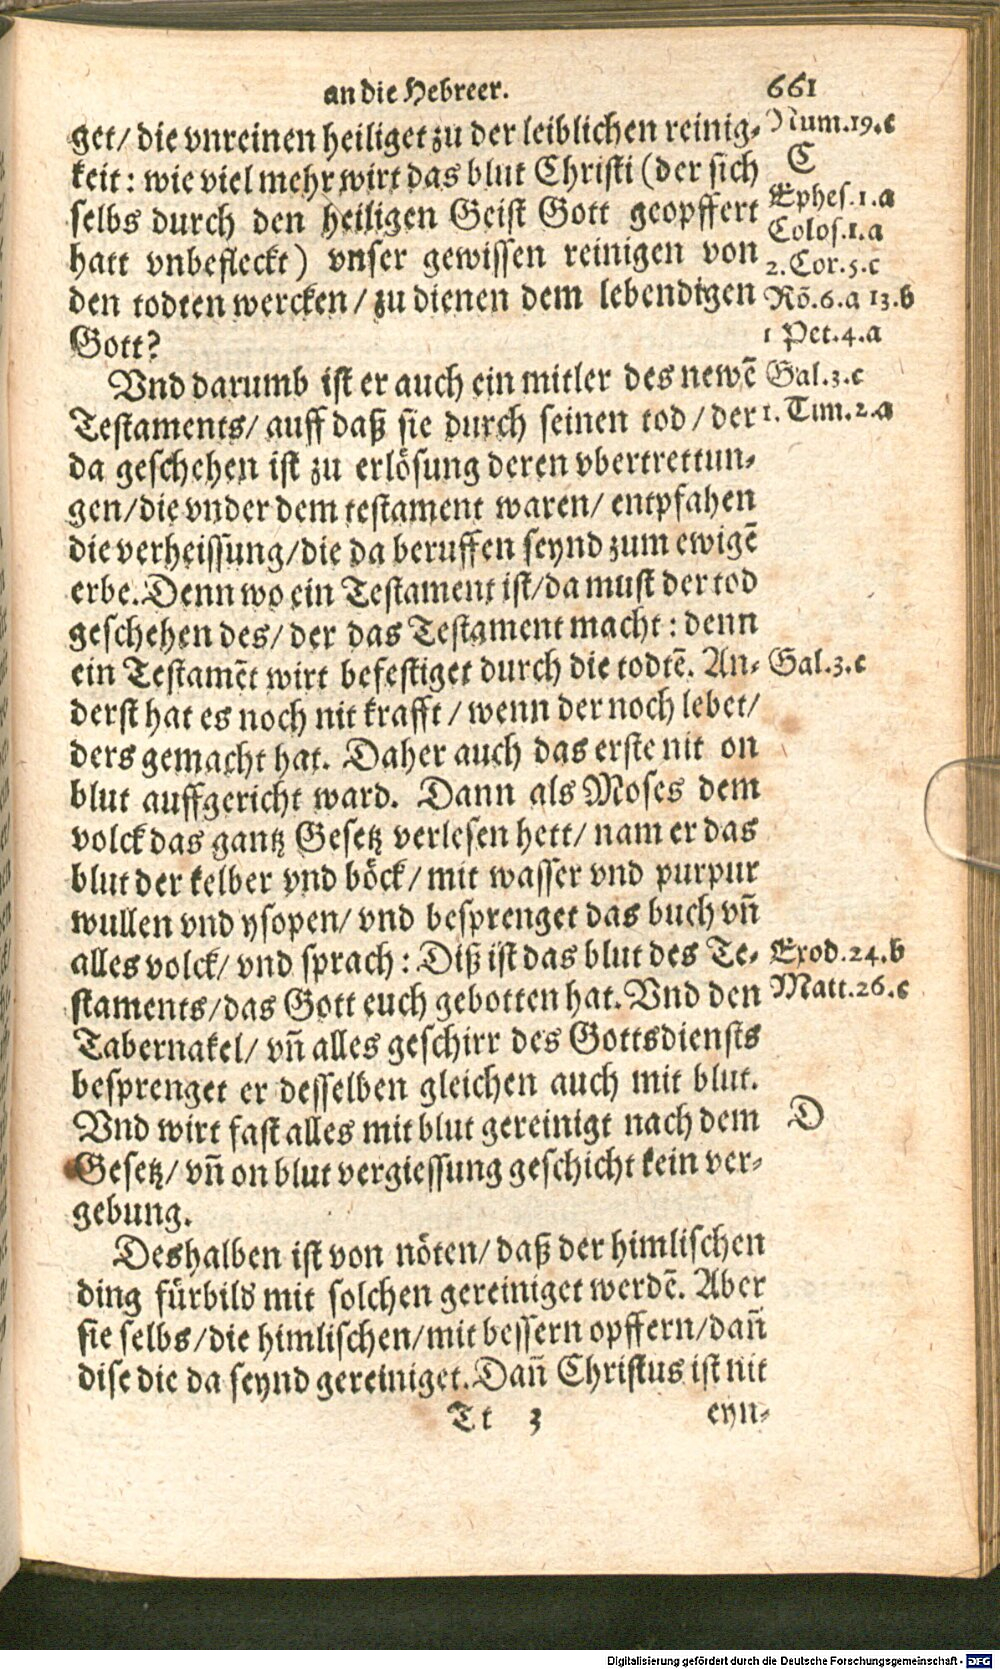 an die Hebreer. 661
get/ die vnreinen heiliget zu der leiblichen reinig- Num.19.c
keit: wie viel mehr wirt das blut Christi (der sich C
selbs durch den heiligen Geist Gott geopffert Ephes.1.a
Colos.1.a
hatt vnbefleckt) vnser gewissen reinigen von 2.Cor.5.c
den todten wercken/ zu dienen dem lebendigen Rõ.6.a 13.b
Gott? 1 Pet.4.a
Vnd darumb ist er auch ein mitler des newẽ Gal.3.c
Testaments/ auff daß sie durch seinen tod/ der 1.Tim.2.a
da geschehen ist zu erlösung deren vbertrettun-
gen/ die vnder dem testament waren/ entpfahen
die verheissung/ die da beruffen seynd zum ewigẽ
erbe. Denn wo ein Testament ist/ da must der tod
geschehen des/ der das Testament macht: denn
ein Testamẽt wirt befestiget durch die todtẽ. An- Gal.3.c
derst hat es noch nit krafft/ wenn der noch lebet/
ders gemacht hat. Daher auch das erste nit on
blut auffgericht ward. Dann als Moses dem
volck das gantz Gesetz verlesen hett/ nam er das
blut der kelber vnd böck/ mit wasser vnd purpur
wullen vnd ysopen/ vnd besprenget das buch vñ
alles volck/ vnd sprach: Diß ist das blut des Te- Exod.24.b
staments/ das Gott euch gebotten hat. Vnd den Matt.26.c
Tabernakel/ vñ alles geschirr des Gottsdiensts
besprenget er desselben gleichen auch mit blut.
Vnd wirt fast alles mit blut gereinigt nach dem D
Gesetz/ vñ on blut vergiessung geschicht kein ver-
gebung.
Deshalben ist von nöten/ daß der himlischen
ding fürbild mit solchen gereiniget werdẽ. Aber
sie selbs/ die himlischen/ mit bessern opffern/ dañ
dise die da seynd gereiniget. Dañ Christus ist nit
Tt 3 eyn-
Digitalisierung gefördert durch die Deutsche Forschungsgemeinschaft - DFG